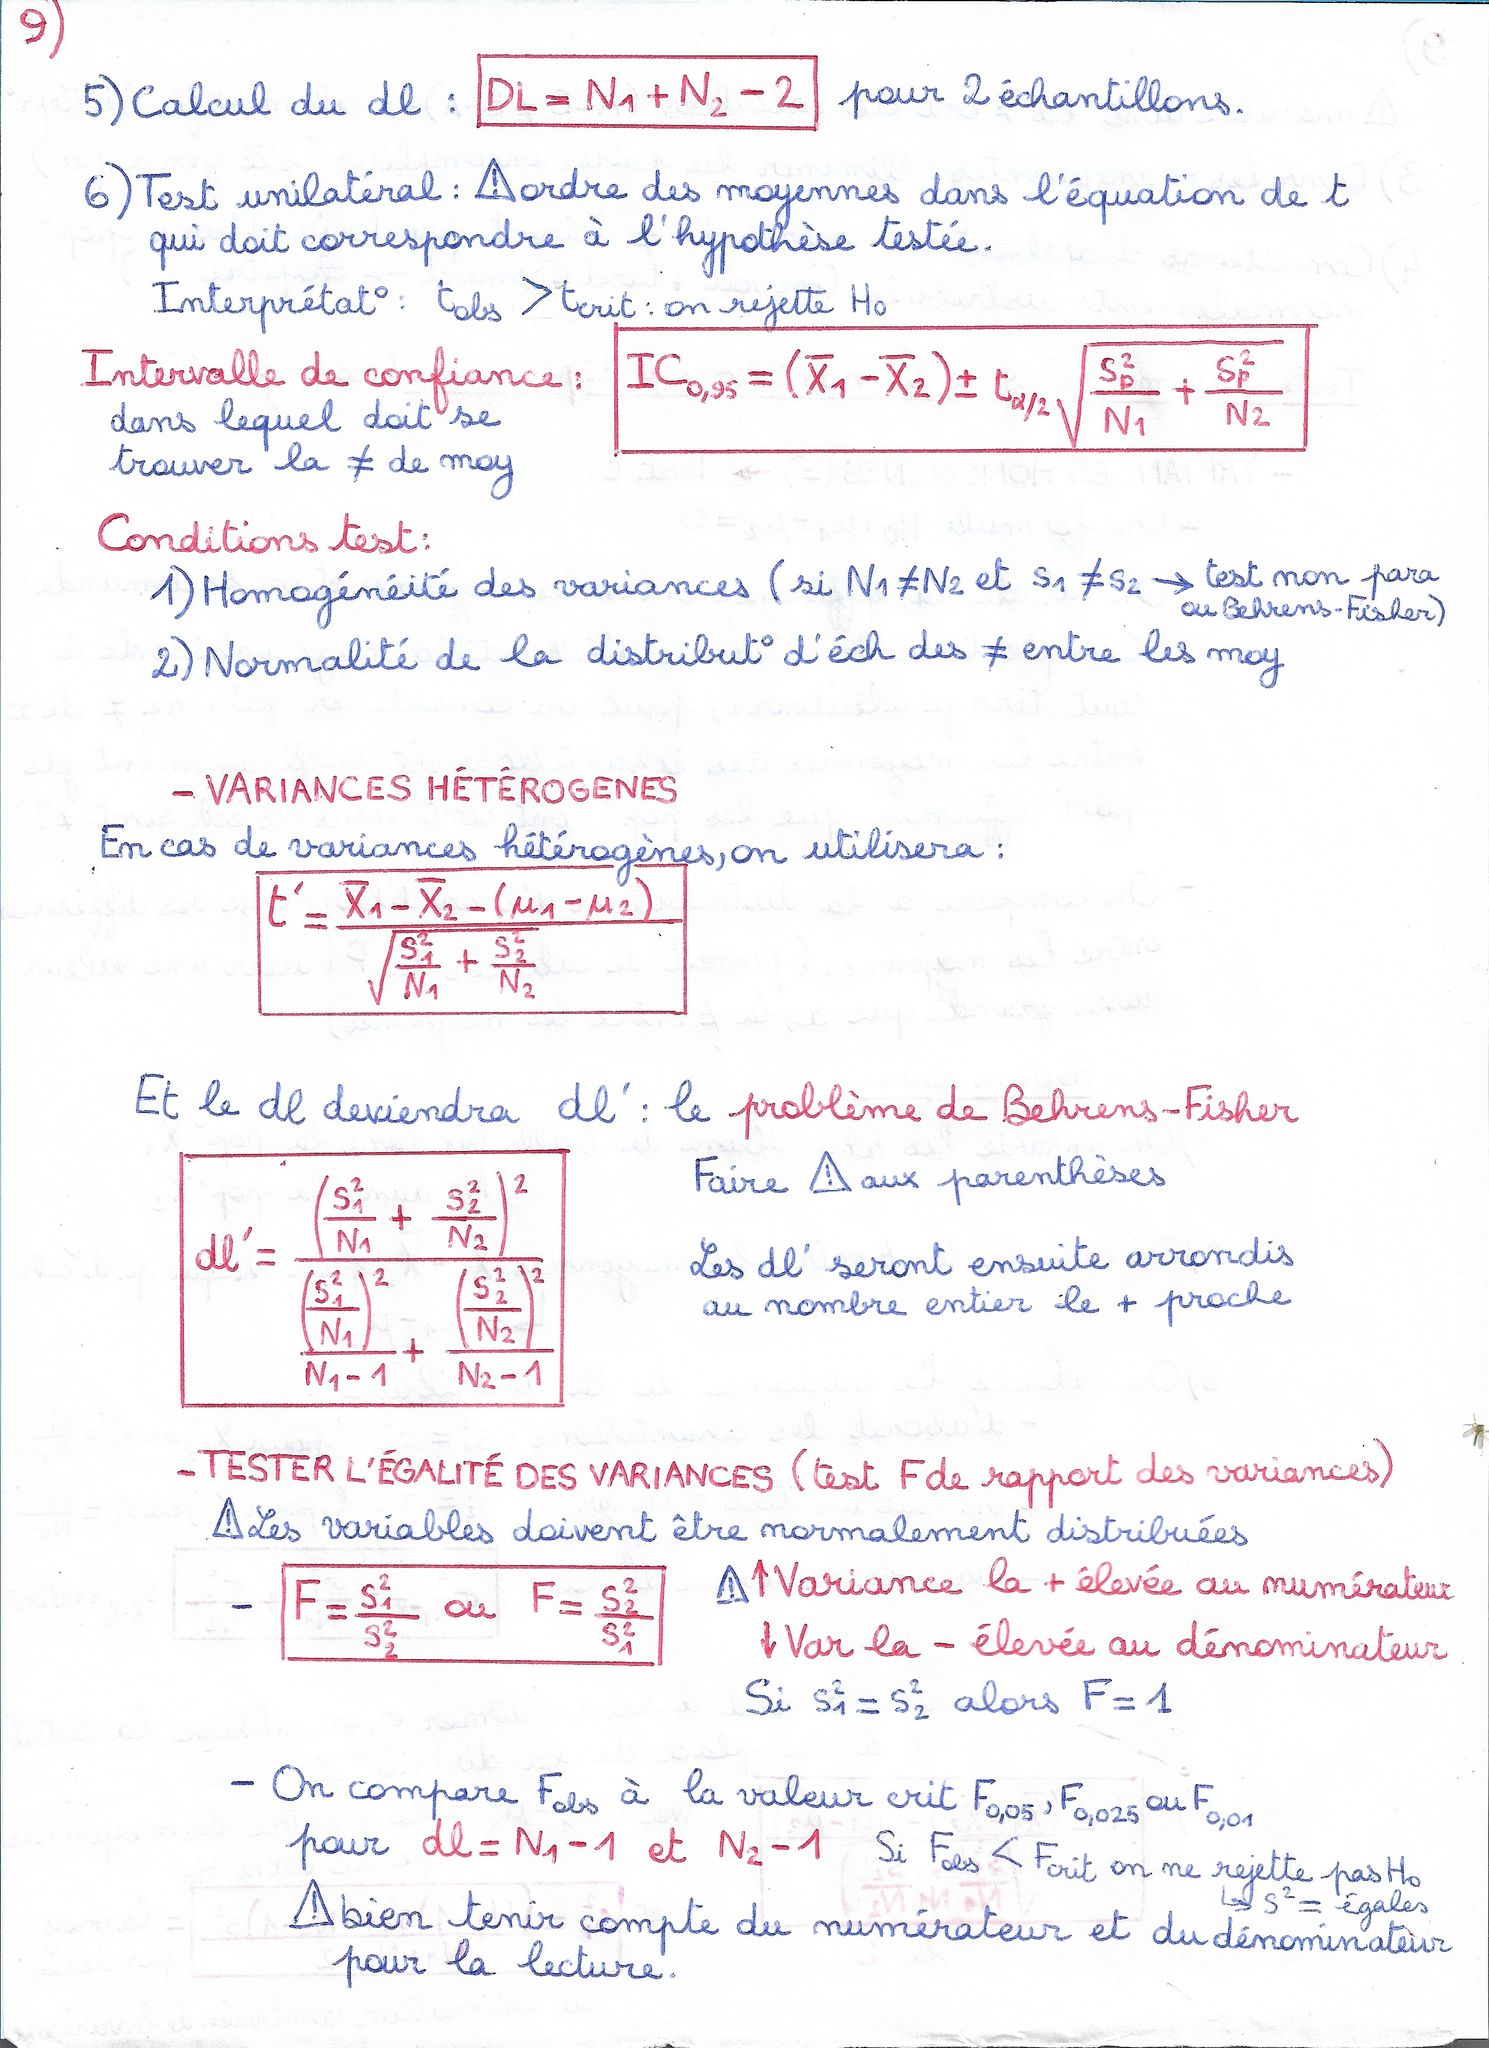 9)
5) Calcul du dl : DL = N1 + N2 - 2 pour 2 échantillons.
6) Test unilatéral : ⚠ ordre des moyennes dans l'équation de t
qui doit correspondre à l'hypothèse testée.
Interprétat° : tobs > tcrit : on rejette H0
Intervalle de confiance : IC0,95 = (X̄1 - X̄2) ± tα/2 √(Sp²/N1 + Sp²/N2)
dans lequel doit se
trouver la ≠ de moy
Conditions test :
1) Homogénéité des variances (si N1 ≠ N2 et s1 ≠ s2 → test non para
ou Behrens-Fisher)
2) Normalité de la distribut° d'éch des ≠ entre les moy
- VARIANCES HÉTÉROGENES
En cas de variances hétérogènes, on utilisera :
t' = (X̄1 - X̄2 - (μ1 - μ2)) / √(S1²/N1 + S2²/N2)
Et le dl deviendra dl' : le problème de Behrens-Fisher
dl' = (S1²/N1 + S2²/N2)² / ((S1²/N1)²/(N1 - 1) + (S2²/N2)²/(N2 - 1))
Faire ⚠ aux parenthèses
Les dl' seront ensuite arrondis
au nombre entier le + proche
- TESTER L'ÉGALITÉ DES VARIANCES (test F de rapport des variances)
⚠ Les variables doivent être normalement distribuées
- F = S1²/S2² ou F = S2²/S1²
⚠ ↑ Variance la + élevée au numérateur
↓ Var la - élevée au dénominateur
Si S1² = S2² alors F = 1
- On compare Fobs à la valeur crit F0,05, F0,025 ou F0,01
pour dl = N1 - 1 et N2 - 1 Si Fobs < Fcrit on ne rejette pas H0
↳ s² = égales
⚠ bien tenir compte du numérateur et du dénominateur
pour la lecture.